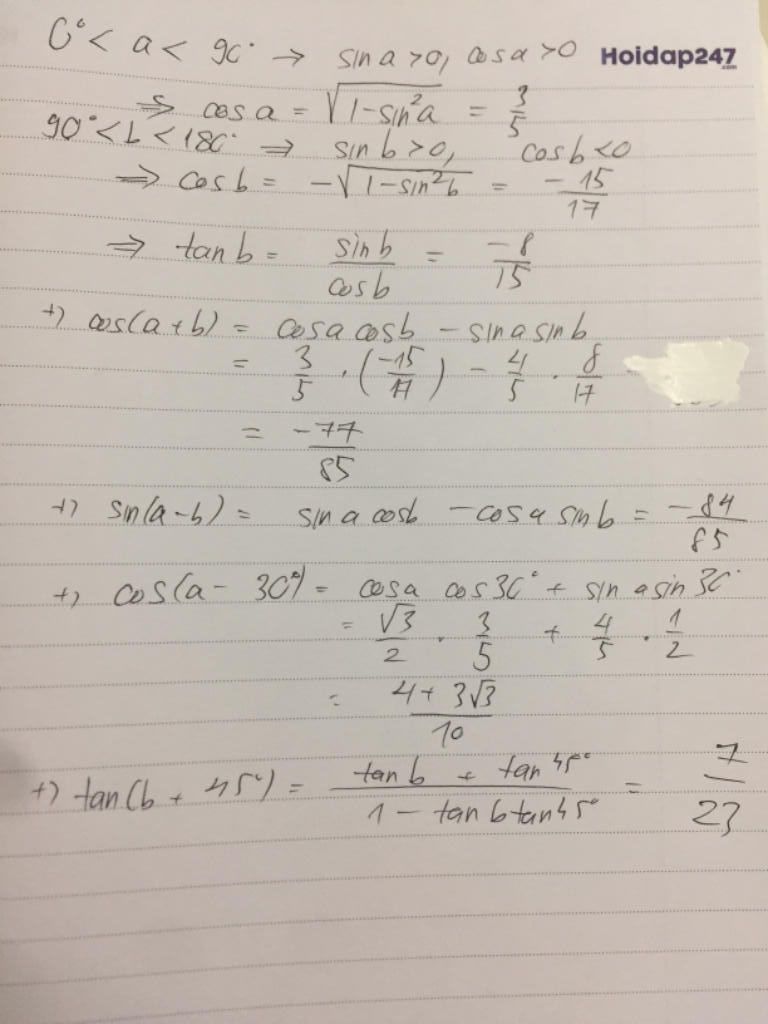 0° < a < 90° → sin a > 0, cos a > 0 Hoidap247.com
⇒ cos a = √(1-sin²a) = 3/5
90° < b < 180° ⇒ sin b > 0, cos b < 0
⇒ cos b = -√(1-sin²b) = -15/17
⇒ tan b = sin b/cos b = -8/15
+) cos(a+b) = cos a cos b - sin a sin b
= 3/5 . (-15/17) - 4/5 . 8/17
= -77/85
+) sin(a-b) = sin a cos b - cos a sin b = -84/85
+) cos(a - 30°) = cos a cos 30° + sin a sin 30°
= √3/2 . 3/5 + 4/5 . 1/2
= (4 + 3√3)/10
+) tan(b + 45°) = (tan b + tan 45°)/(1 - tan b tan 45°) = 7/23